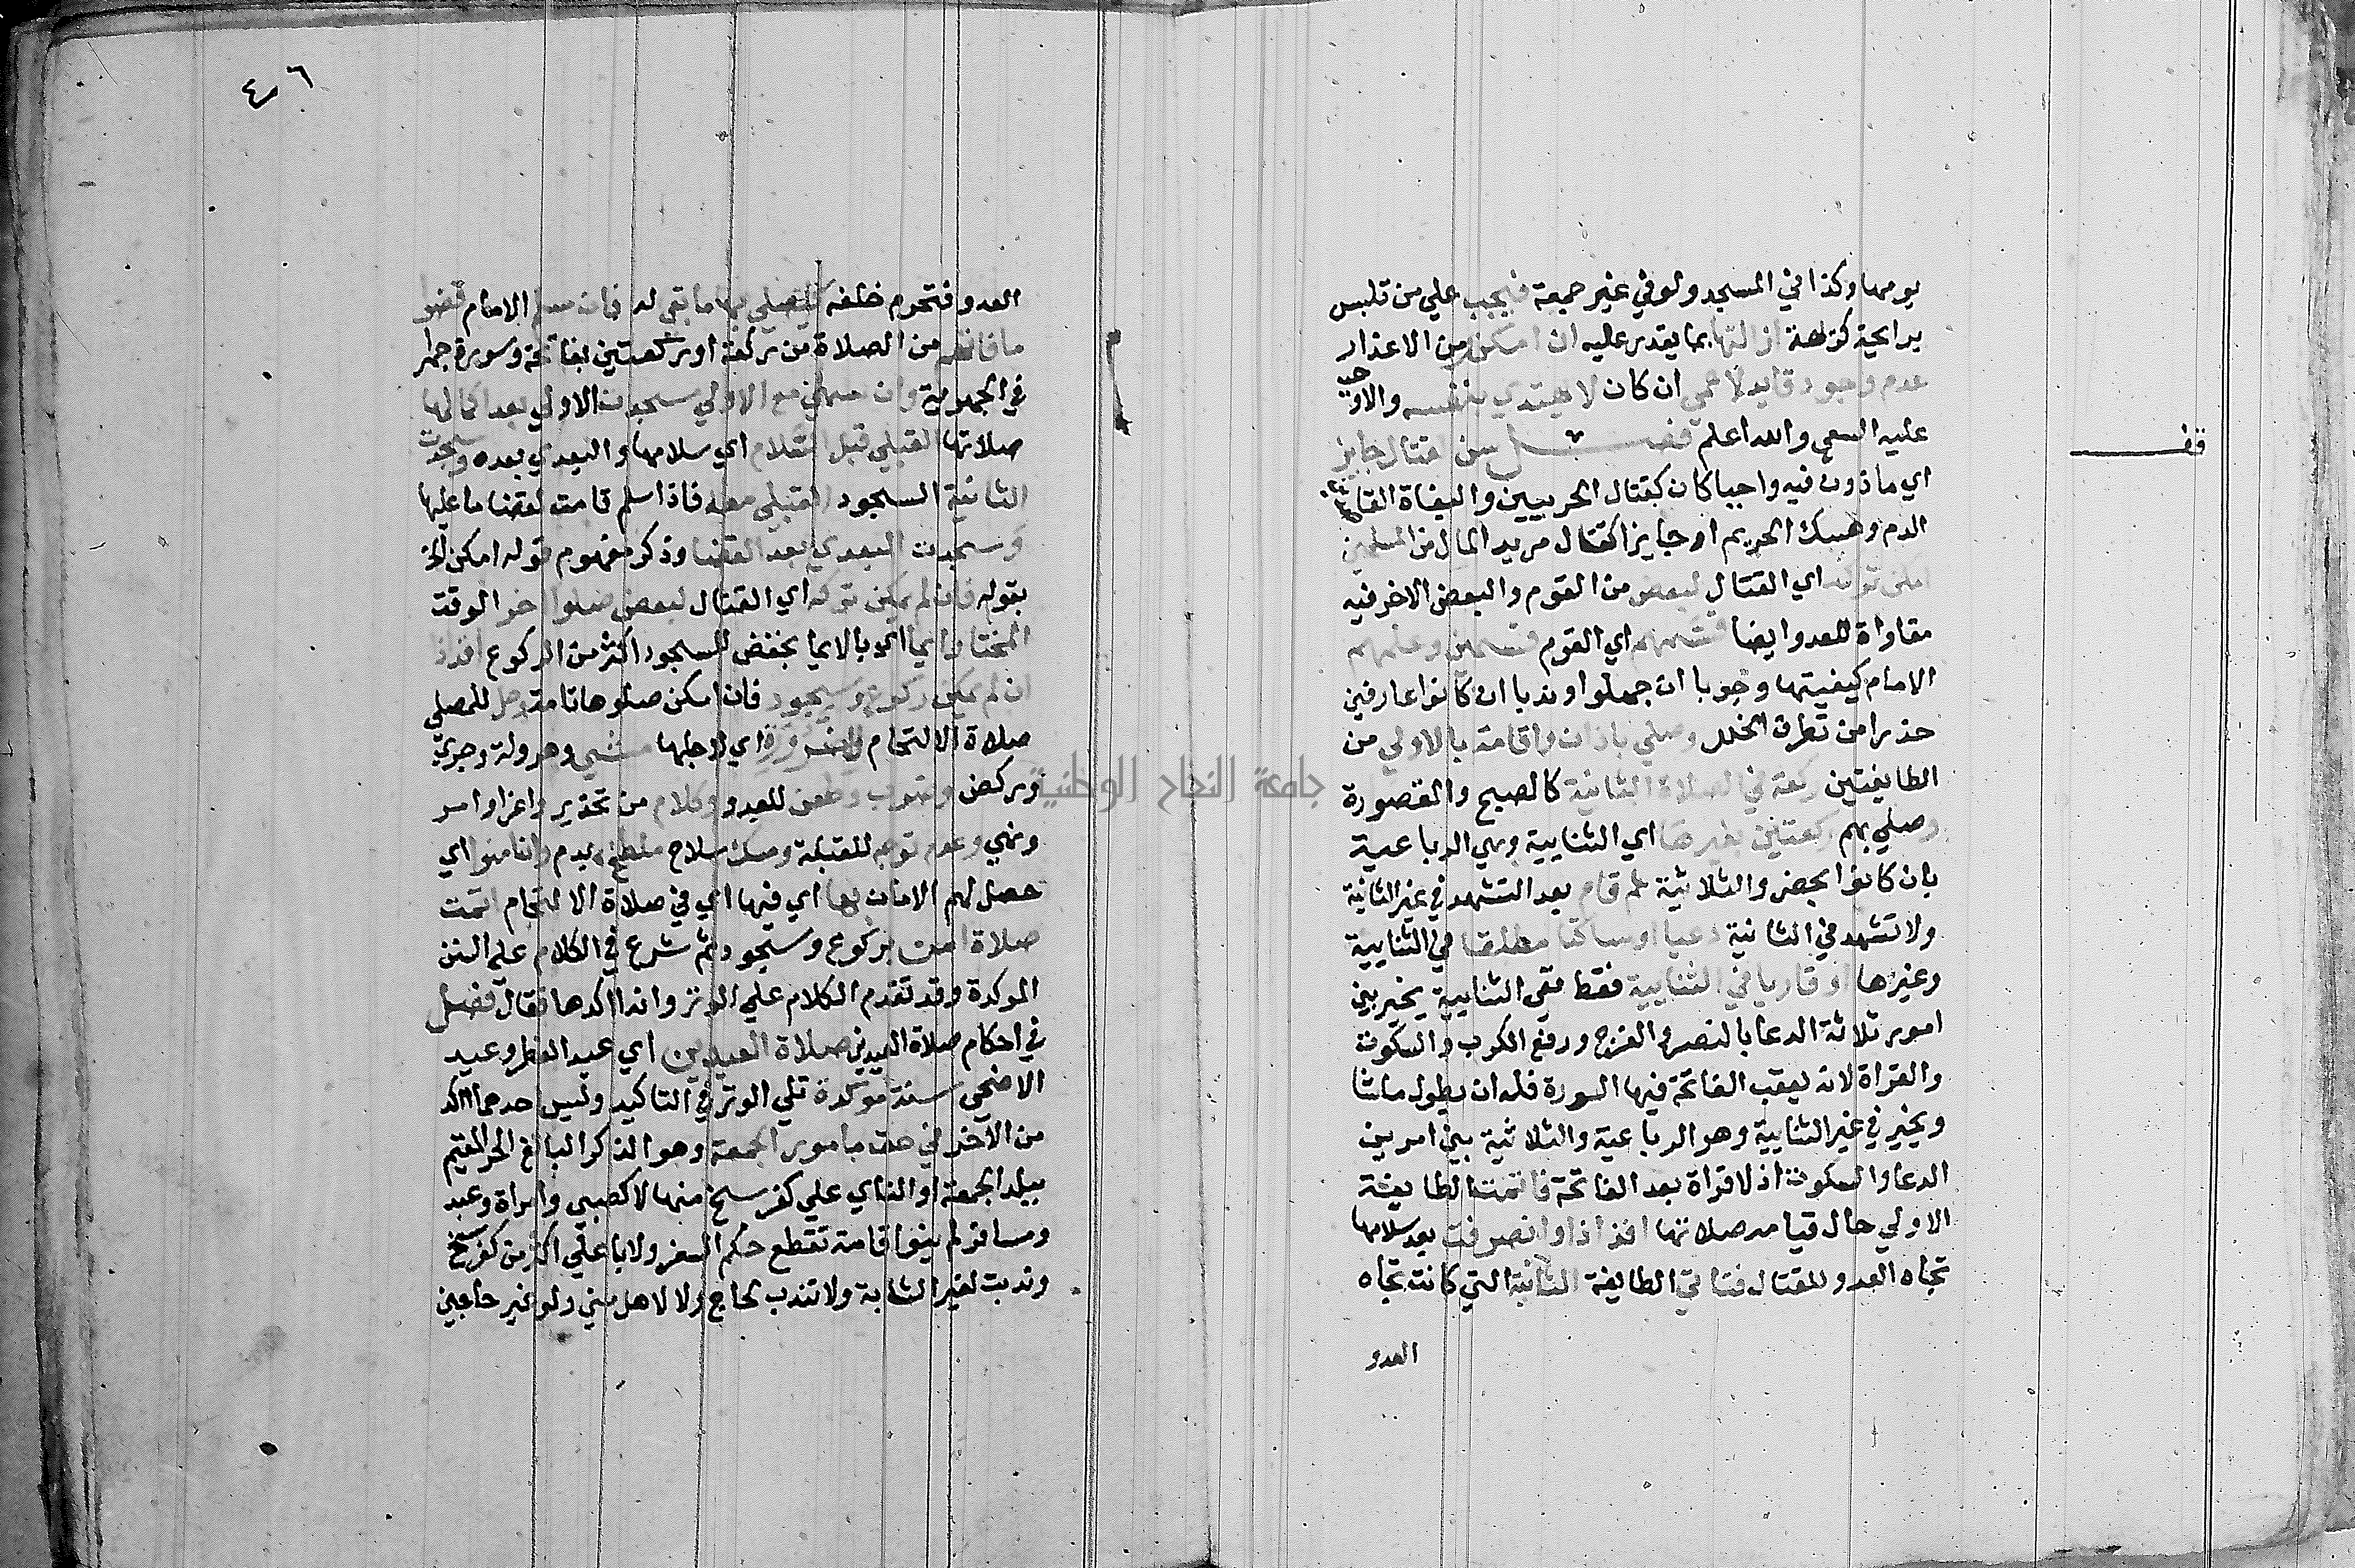 يومها وكذا في المسجد ولو في غير جمعة فيجب علي من تلبس
برايحة كريهة ازالتها بما يقدر عليه ان امكن ومن الاعذار
عدم وجود قايد لاعمي ان كان لا يهتدي بنفسه والاوجب
عليه السعي والله اعلم فصل سن لقتال جايز
قف
اي ماذون فيه واجبا كان كقتال الحربيين والبغاة القاصدين
الدم وهتك الحريم او جايزا كقتال مريد المال من المسلمين
امكن تركه اي القتال لبعض من القوم والبعض الاخر فيه
مقاواة للعدو ايضا قسمهم اي القوم قسمين وعلمهم
الامام كيفيتها وجوبا ان جهلوا وندبا ان كانوا عارفين
حذرا من تطرق الخلل وصلي باذان واقامة بالاولي من
الطايفتين ركعة في الصلاة الثنائية كالصبح والمقصورة
وصلي بهم ركعتين بغيرها اي الثنايية وهي الرباعية
بان كانوا بحضر والثلاثية ثم قام بعد التشهد في غير الثنائية
ولا تشهد في الثنائية داعيا او ساكتا مطلقا في الثنايية
وغيرها او قاريا في الثنايية فقط ففي الثنايية يخير بين
امور ثلاثة الدعا بالنصر والفرج ورفع الكرب والسكوت
والقراة لانه يعقب الفاتحة فيها السورة فله ان يطول ما شا
ويخير في غير الثنايية وهو الرباعية والثلاثية بين امرين
الدعا والسكوت اذ لا قراة بعد الفاتحة فاتمت الطايفة
الاولي حال قيامه صلاتها افذاذا وانصرفت بعد سلامها
تجاه العدو للقتال فتاتي الطايفة الثانية التي كانت تجاه
العدو
٤٦
العدو فتحرم خلفه فيصلي بها ما بقي له فان سلم الامام قضوا
ما فاتهم من الصلاة من ركعة او ركعتين بفاتحة وسورة جهرا
في الجهرية وان سهي مع الاولي سجدت الاولي بعد اكمالها
صلاتها القبلي قبل السلام اي سلامها والبعدي بعده وسجدت
الثانية السجود القبلي معه فاذا سلم قامت لقضا ما عليها
وسجدت البعدي بعد القضا وذكر مفهوم قوله امكن الخ
بقوله فان لم يمكن تركه اي القتال لبعض صلوا اخر الوقت
المختار ايما اي بالايما بخفض للسجود اكثر من الركوع افذاذا
ان لم يمكن ركوع وسجود فان امكن صلوها تامة وحل للمصلي
صلاة الالتحام للضرورة اي لاجلها مشي وهرولة وجري
وركض وضرب وطعن للعدو وكلام من تحذير واغرا وامر
ونهي وعدم توجه للقبلة ومسك سلاح ملطخ بدم وان امنوا اي
حصل لهم الامان بها اي فيها اي في صلاة الالتحام اتمت
صلاة امن بركوع وسجود ثم شرع في الكلام علي السنن
الموكدة وقد تقدم الكلام علي الوتر وانه اكدها فقال فصل
في احكام صلاة العيدين صلاة العيدين اي عيد الفطر وعيد
الاضحي سنة موكدة تلي الوتر في التاكيد وليس احدهما اكد
من الاخر في حق مامور الجمعة وهو الذكر البالغ الحر المقيم
ببلد الجمعة او الناي علي كفرسخ منها لا كصبي وامراة وعبد
ومسافر لم ينو اقامة تقطع حكم السفر ولا ناء علي اكثر من كفرسخ
وندبت لغير الشابة ولا تندب لحاج ولا لاهل مني ولو غير حاجين